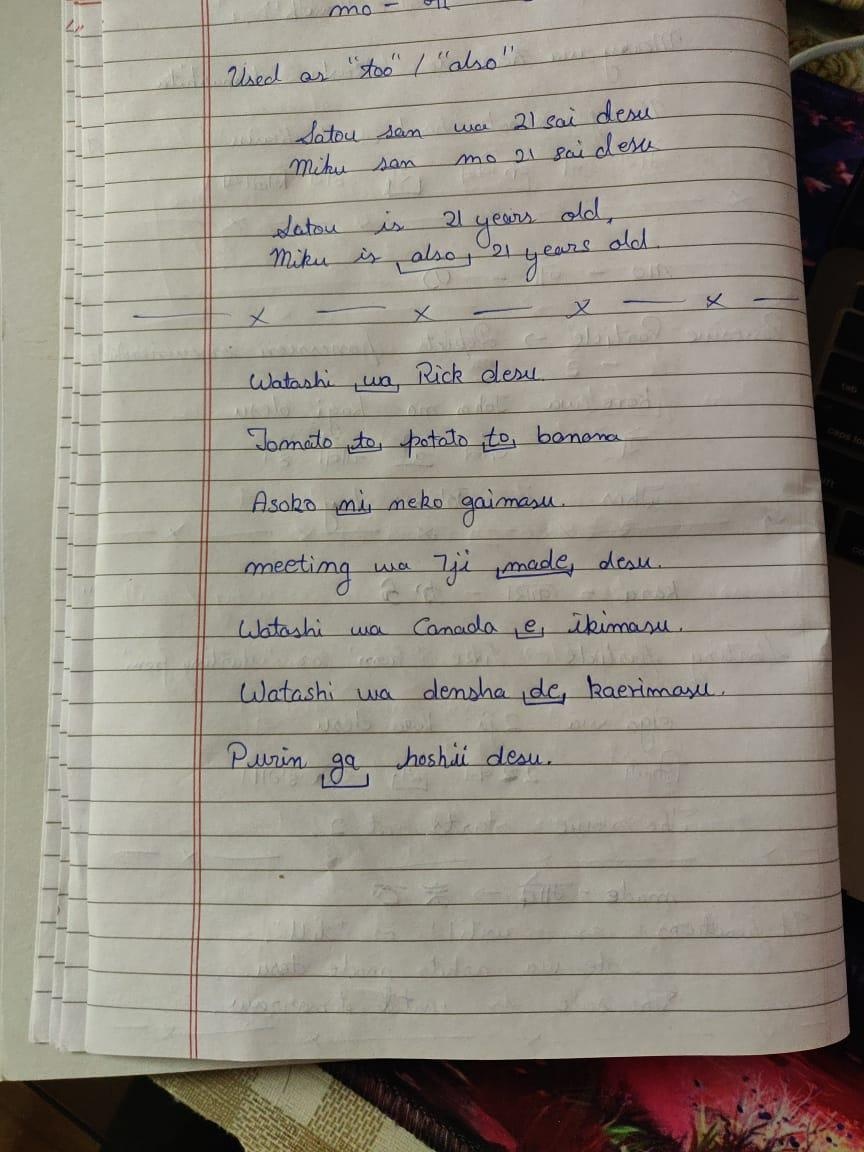 mo -
Used as "too" / "also"
Satou san wa 21 sai desu
Miku san mo 21 sai desu
Satou is 21 years old,
Miku is also 21 years old.
— x — x — x — x —
Watashi wa Rick desu.
Tomato to potato to banana
Asoko ni neko gaimasu.
meeting wa 7ji made desu.
Watashi wa Canada e ikimasu.
Watashi wa densha de kaerimasu.
Purin ga hoshii desu.